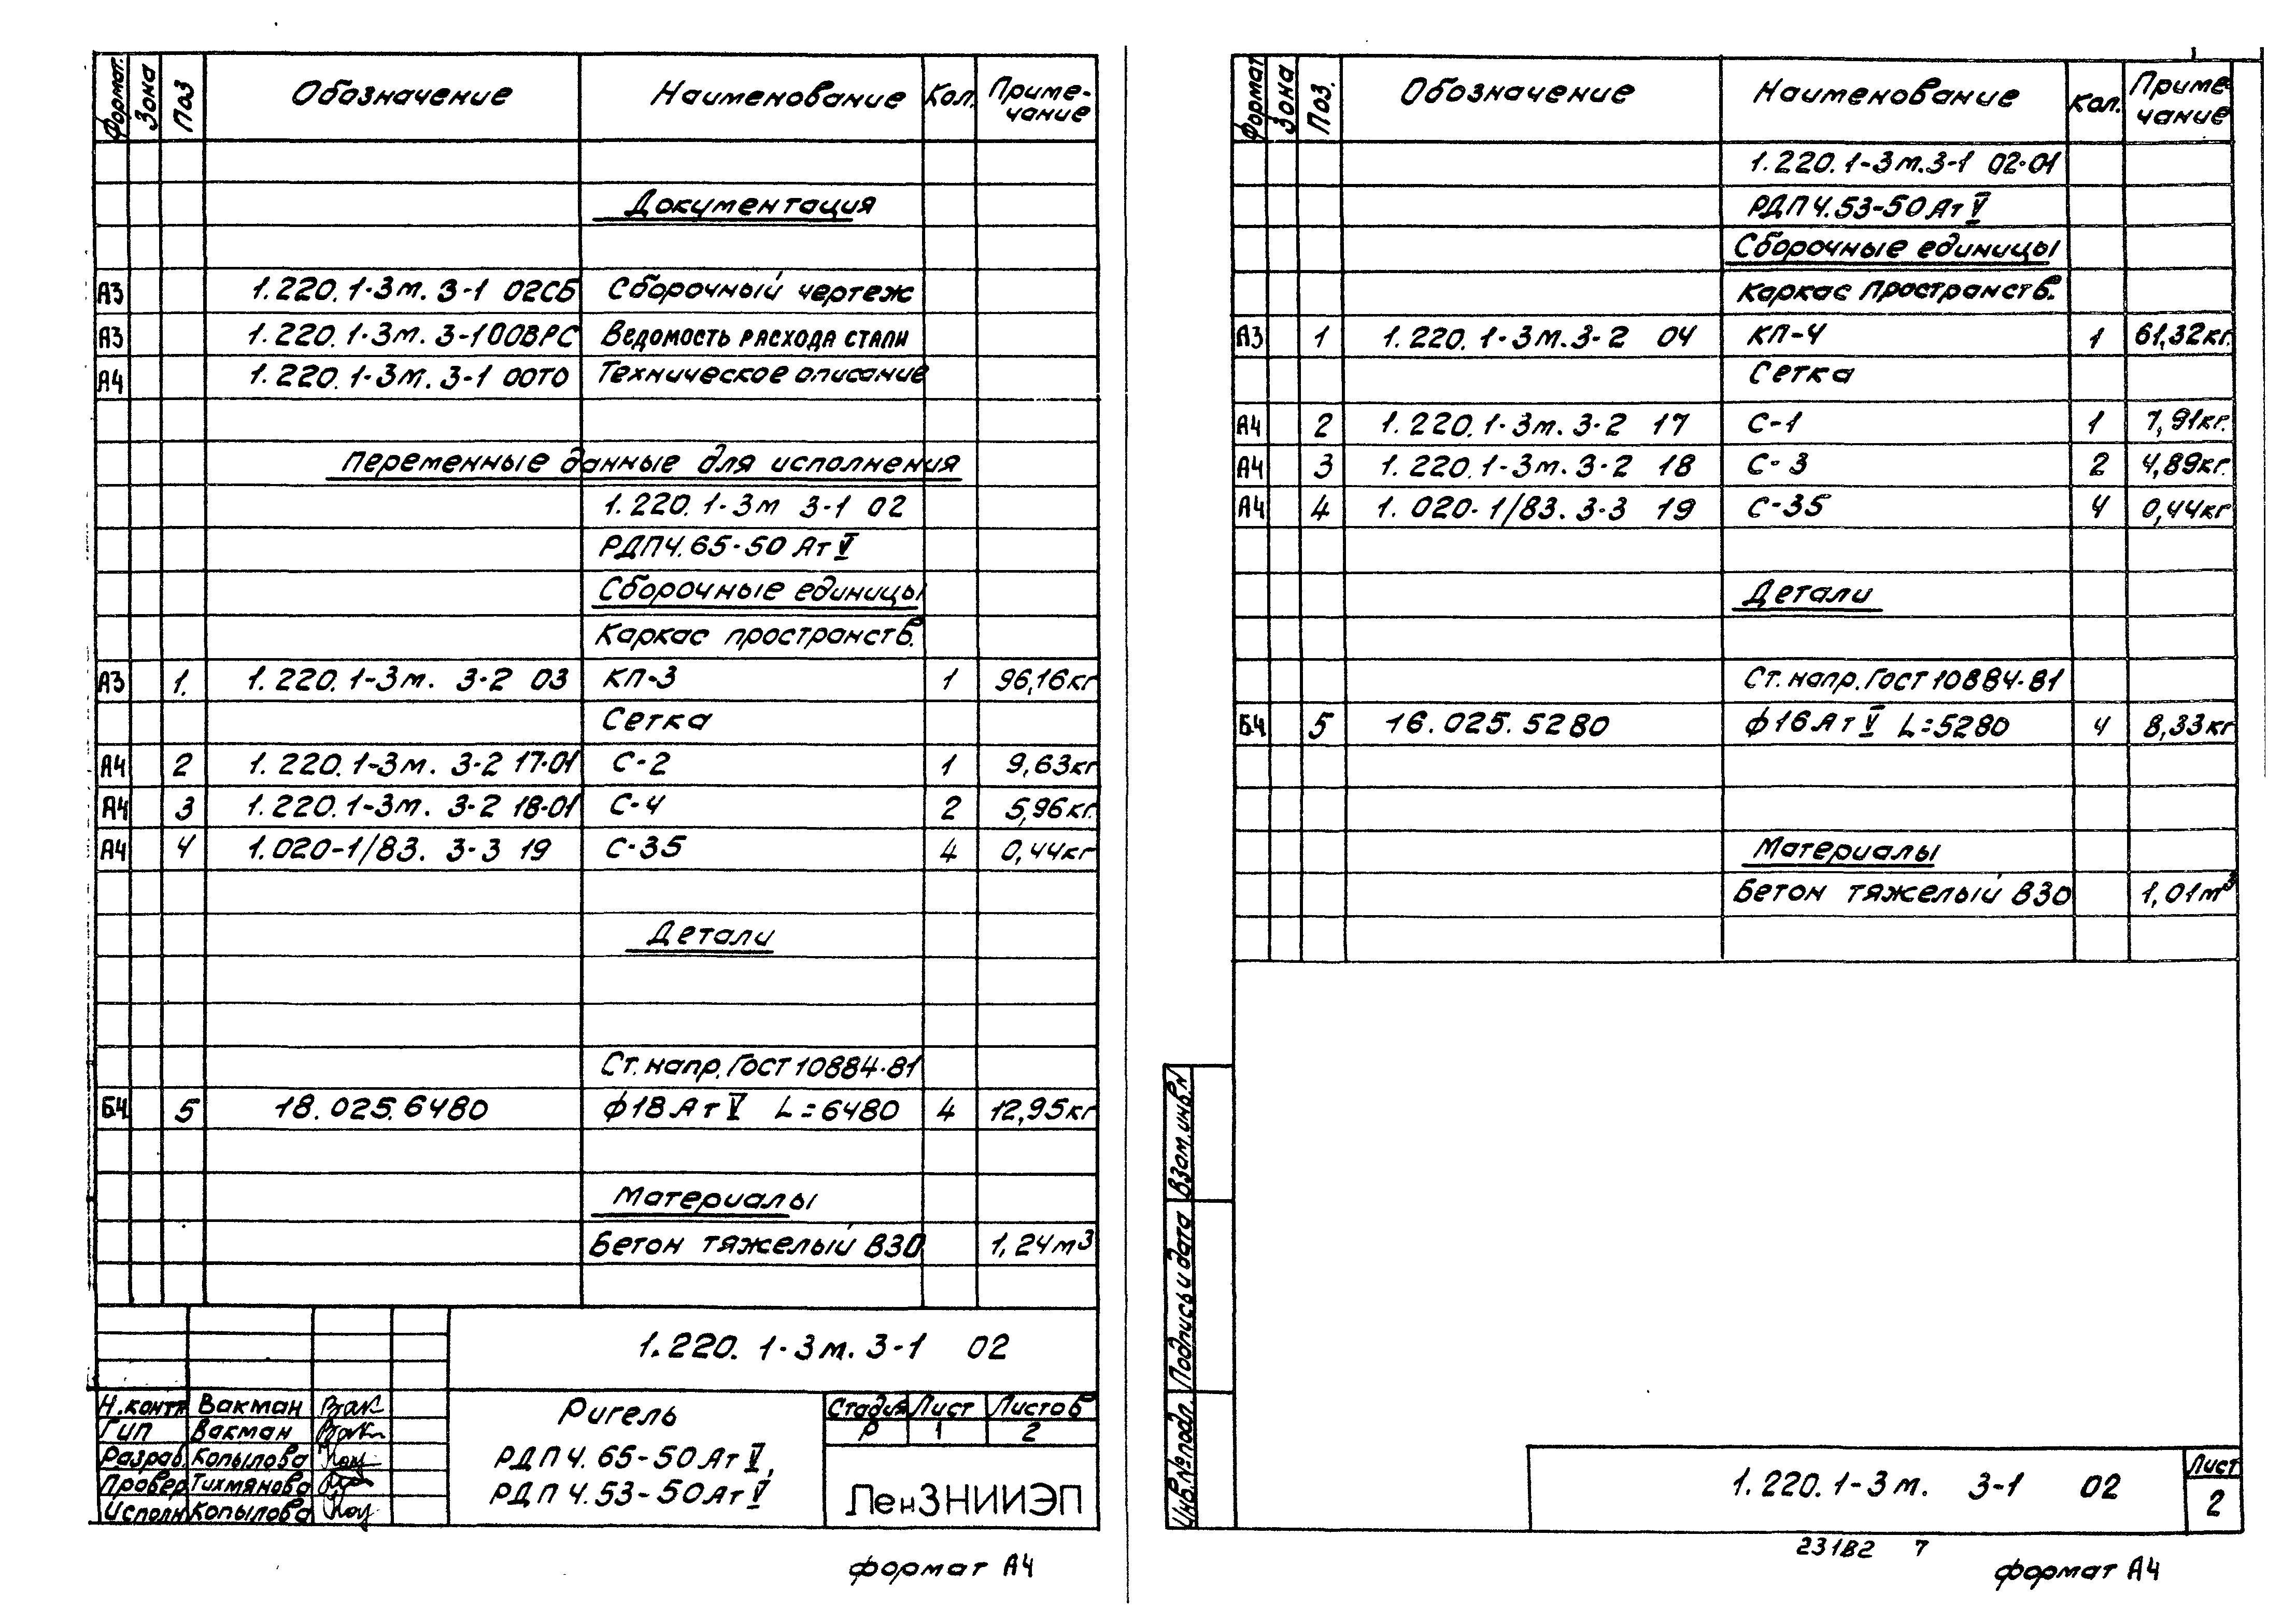 Формат. Зона Поз Обозначение Наименование Кол. Приме-
чание
Документация
А3 1.220.1-3м.3-1 02СБ Сборочный чертеж
А3 1.220.1-3м.3-1 00ВРС Ведомость расхода стали
А4 1.220.1-3м.3-1 00ТО Техническое описание
Переменные данные для исполнения
1.220.1-3м 3-1 02
РДП4.65-50 АтV
Сборочные единицы
Каркас пространств.
А3 1. 1.220.1-3м. 3-2 03 КП-3 1 96,16кг
Сетка
А4 2 1.220.1-3м. 3-2 17-01 С-2 1 9,63кг
А4 3 1.220.1-3м. 3-2 18-01 С-4 2 5,96кг.
А4 4 1.020-1/83. 3-3 19 С-35 4 0,44кг
Детали
Ст. напр. Гост 10884-81
Б4 5 18.025.6480 ф18АтV L=6480 4 12,95кг
Материалы
Бетон тяжелый В30 1,24м³
1.220.1-3м.3-1 02
Н.контр Вакман
ГИП Вакман
Разраб. Копылова
Провер Тихмянова
Исполн Копылова
Ригель
РДП4.65-50АтV,
РДП4.53-50АтV
Стадия Лист Листов
Р 1 2
ЛенЗНИИЭП
формат А4
Формат Зона Поз. Обозначение Наименование Кол. Приме
чание
1.220.1-3м.3-1 02-01
РДП4.53-50АтV
Сборочные единицы
Каркас пространств.
А3 1 1.220.1-3м.3-2 04 КП-4 1 61,32кг.
Сетка
А4 2 1.220.1-3м.3-2 17 С-1 1 7,91кг.
А4 3 1.220.1-3м.3-2 18 С-3 2 4,89кг.
А4 4 1.020-1/83.3-3 19 С-35 4 0,44кг
Детали
Ст. напр. Гост 10884-81
Б4 5 16.025.5280 ф16АтV L=5280 4 8,33кг
Материалы
Бетон тяжелый В30 1,01м³
Взам.инв.N
Подпись и дата
Инв.№подл.
1.220.1-3м. 3-1 02
Лист
2
231В2 7
формат А4